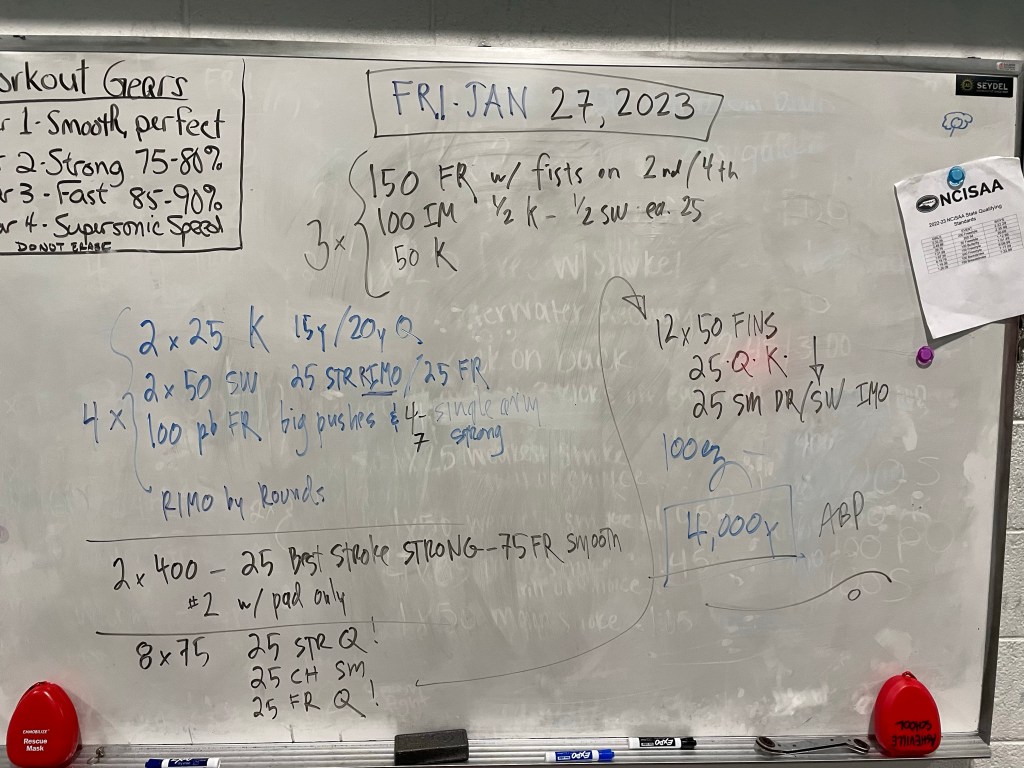 orkout Gears
r 1-Smooth, perfect
2-Strong 75-80%
ar 3 - Fast 85-90%
ar 4 - Supersonic Speed
DO NOT ERASE
FRI. JAN 27, 2023
SEYDEL
3x
150 FR w/ fists on 2nd/4th
100 IM 1/2 K - 1/2 SW. ea. 25
50 K
NCISAA
2022-23 NCISAA State Qualifying
Standards
4x
2 x 25 K 15y/20y Q
2 x 50 SW 25 STR RIMO/25 FR
100 pb FR big pushes & 4- single arm
7 strong
RIMO by Rounds
2 x 400 - 25 Best Stroke STRONG - 75 FR smooth
#2 w/ pad only
8 x 75 25 STR Q!
25 CH SM
25 FR Q!
12 x 50 FINS
25 · Q · K · ↓
25 SM DR/SW IMO
100 ez
4,000y ABP
Rescue
Mask
ASHEVILLE
SCHOOL
EXPO
EXPO
EXPO